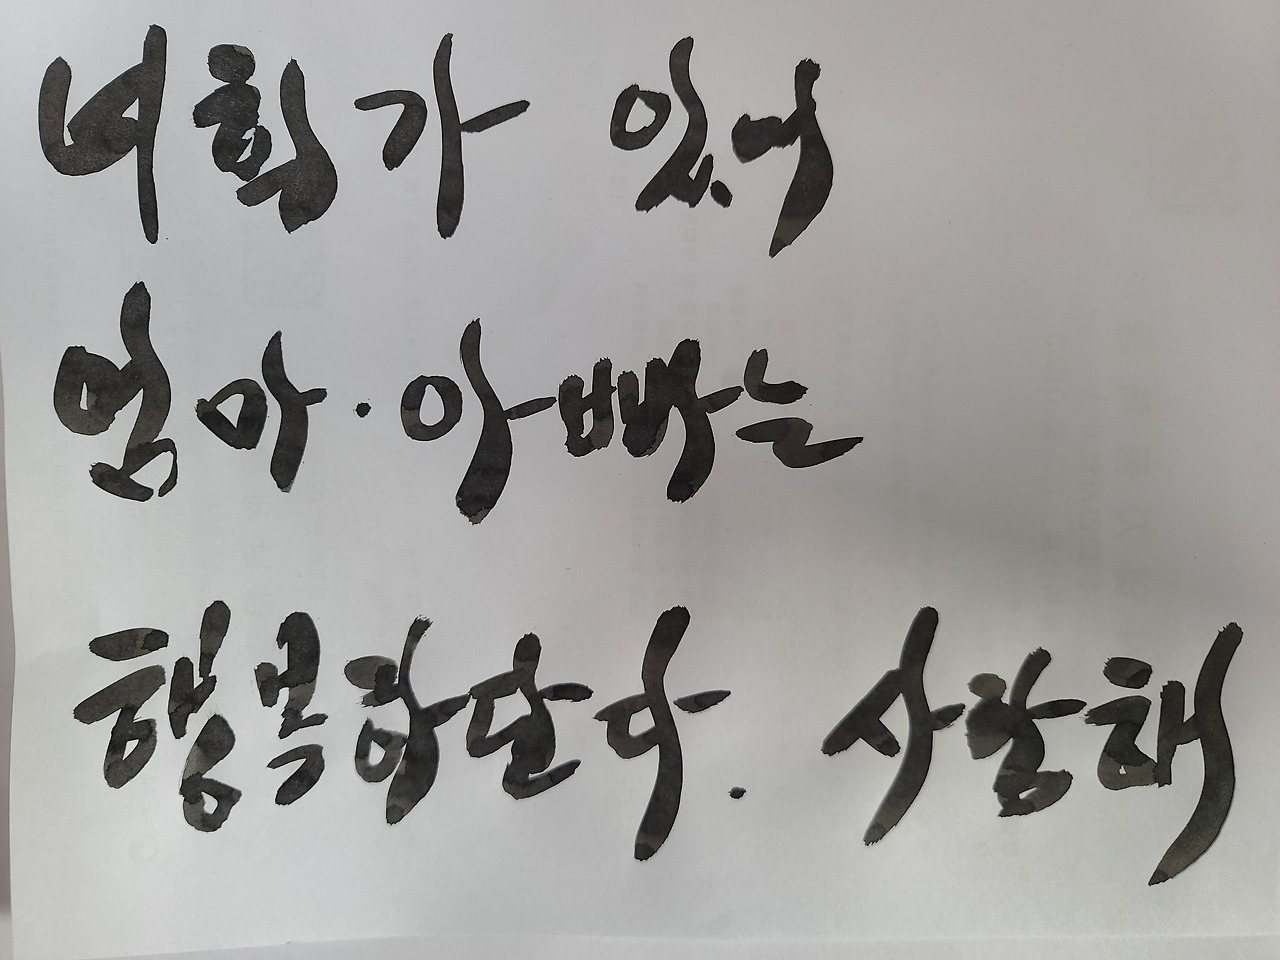 너희가 있어
엄마·아빠는
행복하단다. 사랑해